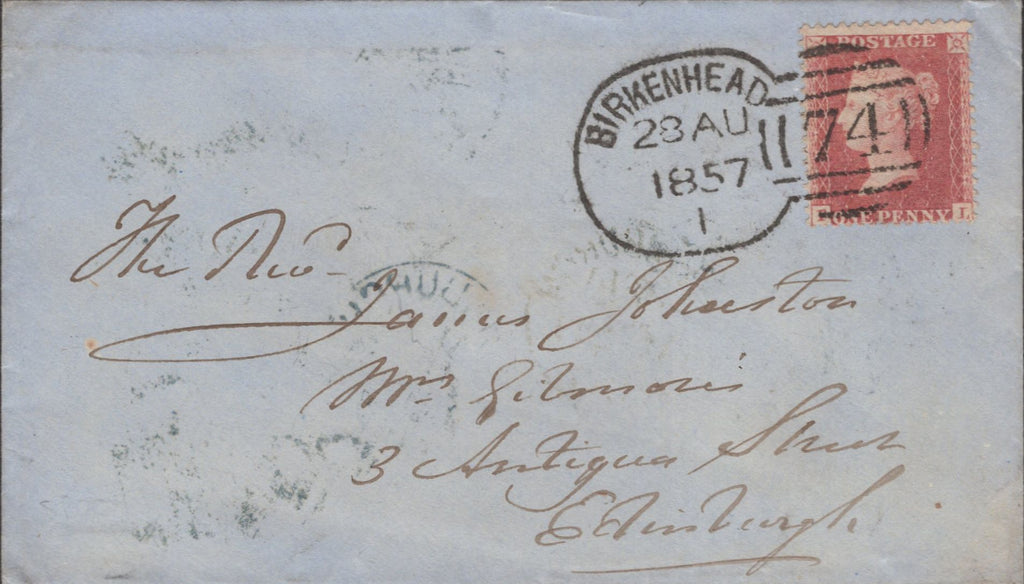 POSTAGE
BIRKENHEAD
28 AU
1857
1
74
ONE PENNY L
The Revd
James Johnston
Mrs Gilmore's
3 Antigua Street
Edinburgh